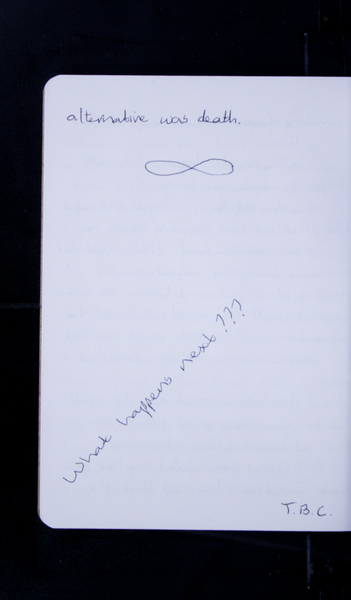 alternative was death.
What happens next???
T.B.C.